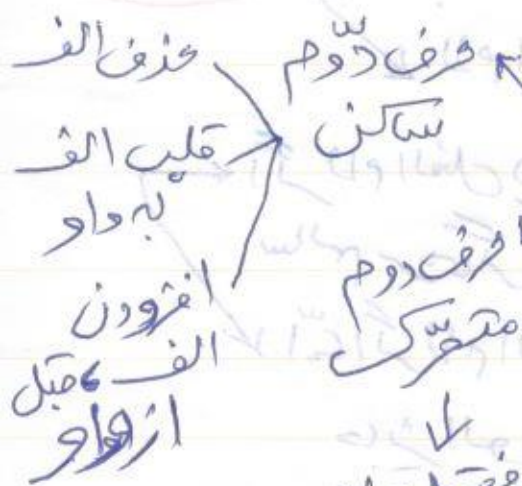 حرف دوّم
ساکن
حذف الف
قلب الف
به واو
افزودن
الف قبل
از واو
حرف دوم
متحرّک
فقط